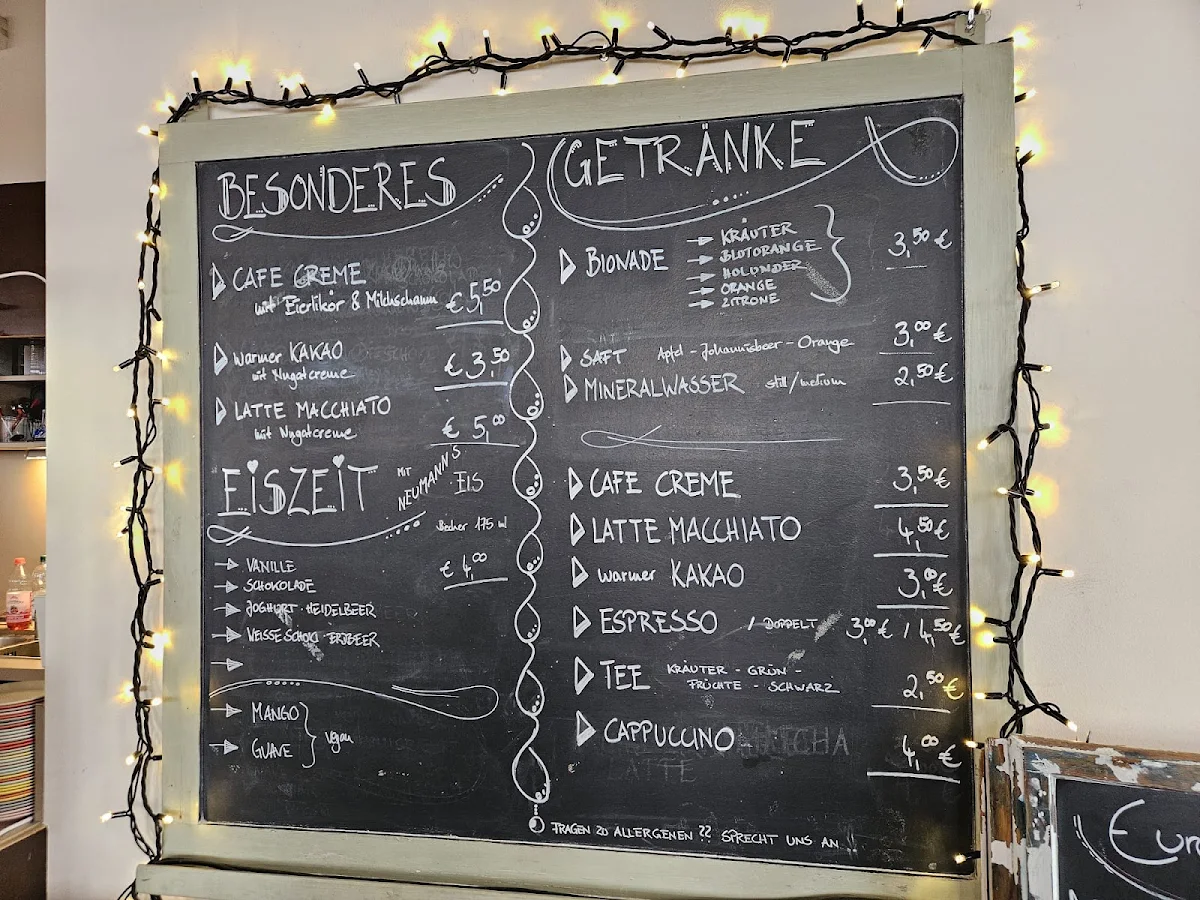 BESONDERES
CAFE CREME
mit Eierlikör & Milchschaum € 5,50
warmer KAKAO
mit Nugatcreme € 3,50
LATTE MACCHIATO
mit Nugatcreme € 5,00
EISZEIT MIT NEUMANN'S EIS
Becher 175 ml
VANILLE € 4,00
SCHOKOLADE
JOGHURT-HEIDELBEER
WEISSE SCHOKI-ERDBEER
MANGO
GUAVE
vegan
GETRÄNKE
BIONADE KRÄUTER 3,50 €
BLUTORANGE
HOLUNDER
ORANGE
ZITRONE
SAFT Apfel - Johannisbeer - Orange 3,00 €
MINERALWASSER still/medium 2,50 €
CAFE CREME 3,50 €
LATTE MACCHIATO 4,50 €
warmer KAKAO 3,00 €
ESPRESSO / DOPPELT 3,00 € / 4,50 €
TEE KRÄUTER - GRÜN -
FRÜCHTE - SCHWARZ 2,50 €
CAPPUCCINO 4,00 €
MATCHA
LATTE
FRAGEN ZU ALLERGENEN ?? SPRECHT UNS AN !!